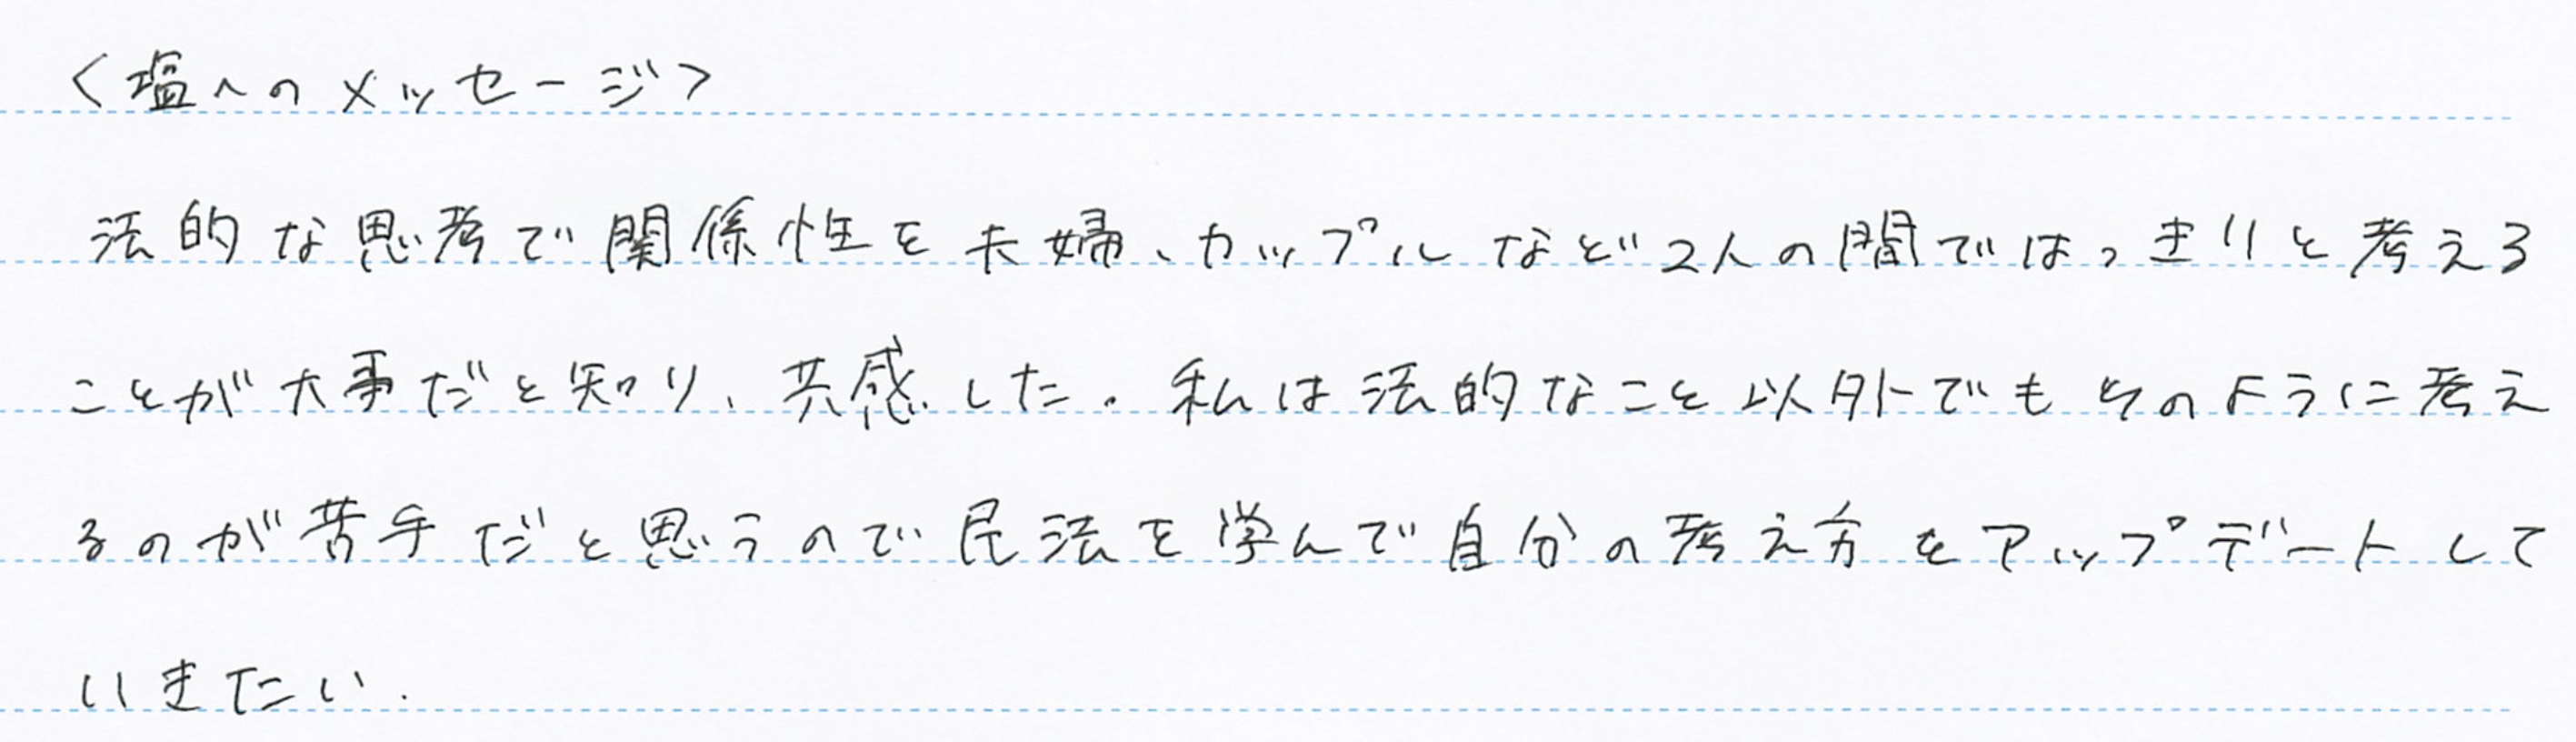 <塩へのメッセージ>
法的な思考で関係性を夫婦、カップルなど2人の間ではっきりと考える
ことが大事だと知り、共感した。私は法的なこと以外でもそのように考え
るのが苦手だと思うので民法を学んで自分の考え方をアップデートして
いきたい.